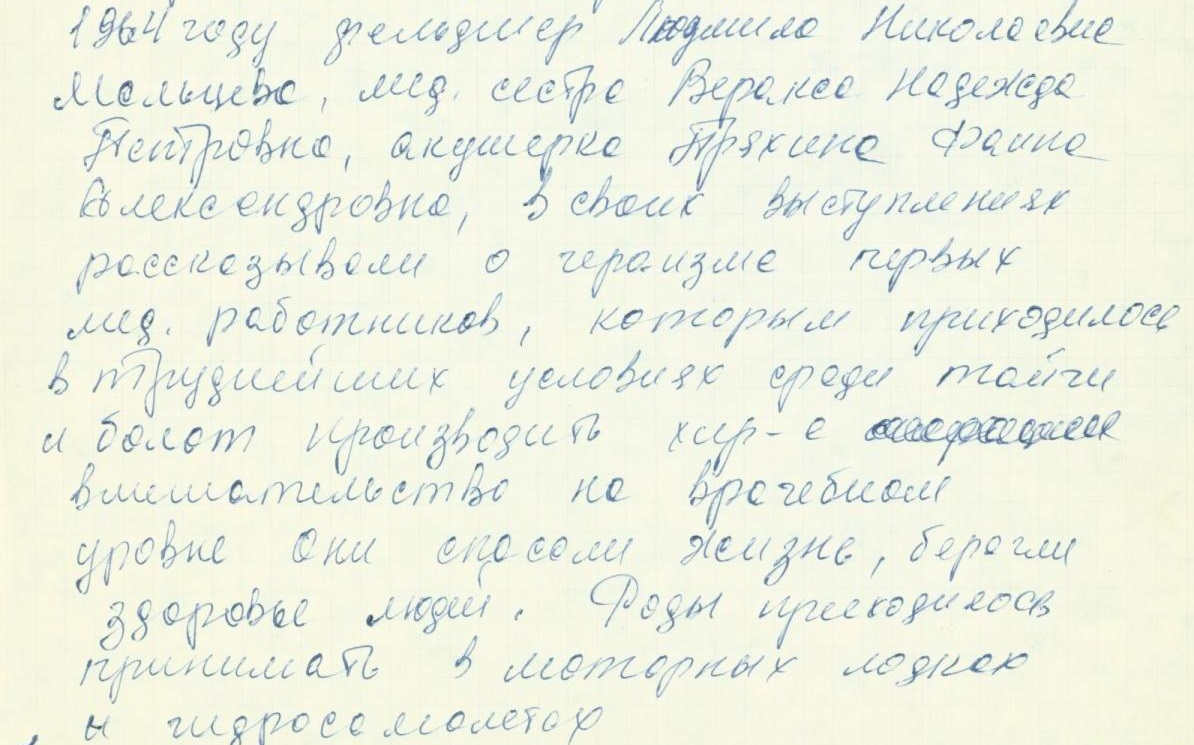 1964 году фельдшер Людмила Николаевна
Мальцева, мед. сестра Веракса Надежда
Петровна, акушерка Пряхина Фаина
Александровна, в своих выступлениях
рассказывали о героизме первых
мед. работников, которым приходилось
в труднейших условиях среди тайги
и болот производить хир-е
вмешательство на врачебном
уровне они спасали жизнь, берегли
здоровье людей. Роды приходилось
принимать в моторных лодках
и гидросамолетах